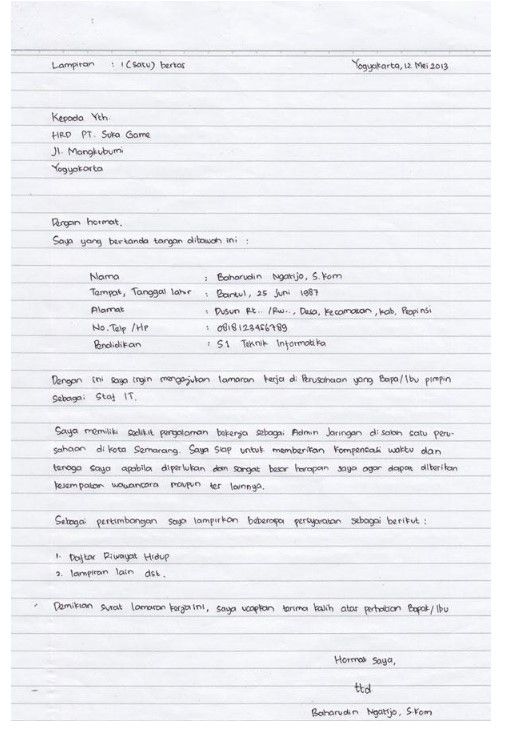 Lampiran : 1 (satu) berkas Yogyakarta, 12 Mei 2013
Kepada Yth.
HRD PT. Suka Game
Jl. Mangkubumi
Yogyakarta
Dengan hormat,
Saya yang bertanda tangan dibawah ini :
Nama : Baharudin Ngatijo, S.Kom
Tempat, Tanggal lahir : Bantul, 25 Juni 1987
Alamat : Dusun Rt.. /Rw.., Desa, Kecamatan, kab, Propinsi
No. Telp /HP : 0818123456789
Pendidikan : S1 Teknik Informatika
Dengan ini saya ingin mengajukan lamaran kerja di Perusahaan yang Bapa/Ibu pimpin
Sebagai Staf IT.
Saya memiliki sedikit pengalaman bekerja sebagai Admin Jaringan di salah satu peru-
sahaan di kota Semarang. Saya siap untuk memberikan kompensasi waktu dan
tenaga saya apabila diperlukan dan sangat besar harapan saya agar dapat diberikan
kesempatan wawancara maupun tes lainnya.
Sebagai pertimbangan saya lampirkan beberapa persyaratan sebagai berikut :
1. Daftar Riwayat Hidup
2. lampiran lain dst.
Demikian surat lamaran kerja ini, saya ucapkan terima kasih atas perhatian Bapak/Ibu
Hormat Saya,
ttd
Baharudin Ngatijo, S.Kom